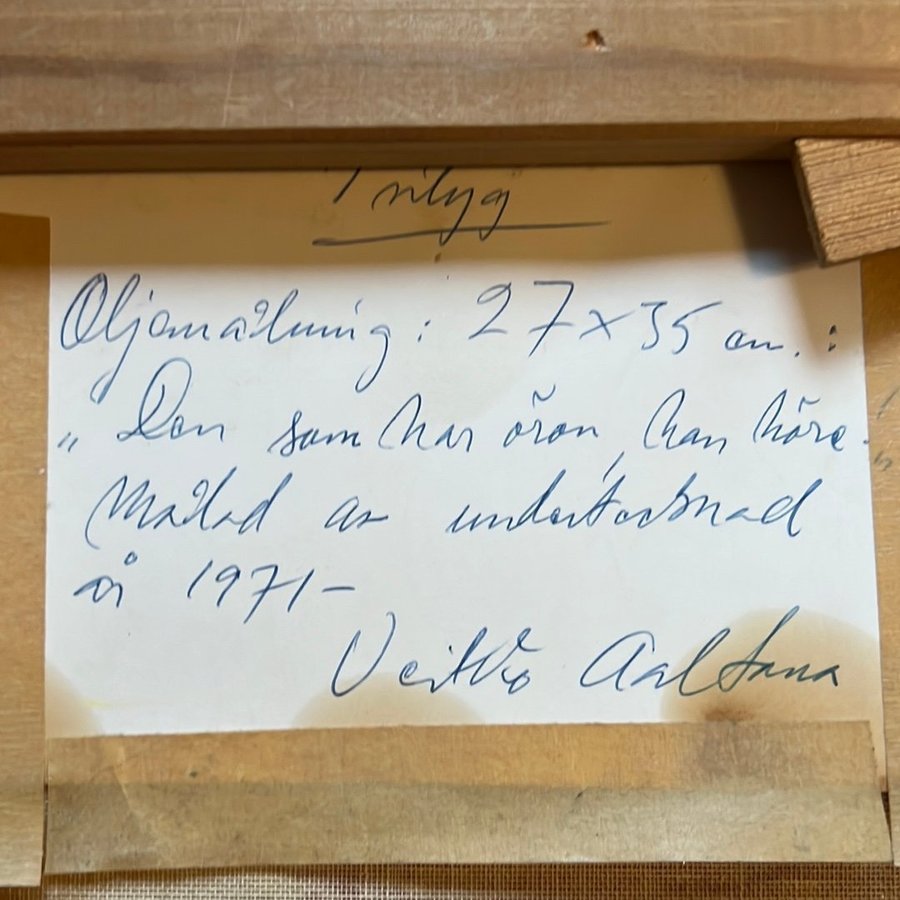 Intyg
Oljemålning: 27 x 35 cm. :
„ Den som har öron, han höre. "
Målad av undertecknad
år 1971-
Veikko Aaltona